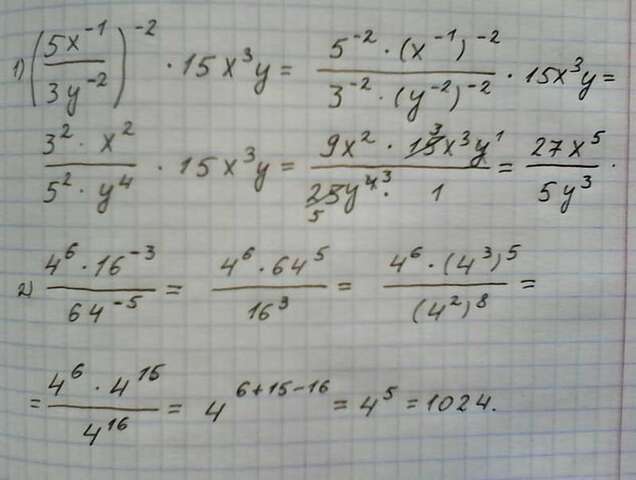 1) (5x⁻¹ / 3y⁻²)⁻² · 15x³y = 5⁻² · (x⁻¹)⁻² / 3⁻² · (y⁻²)⁻² · 15x³y =
3² · x² / 5² · y⁴ · 15x³y = 9x² · 15 3 x³y¹ / 25 5 y⁴ ³ · 1 = 27x⁵ / 5y³ .
2) 4⁶ · 16⁻³ / 64⁻⁵ = 4⁶ · 64⁵ / 16³ = 4⁶ · (4³)⁵ / (4²)⁸ =
= 4⁶ · 4¹⁵ / 4¹⁶ = 4⁶⁺¹⁵⁻¹⁶ = 4⁵ = 1024.